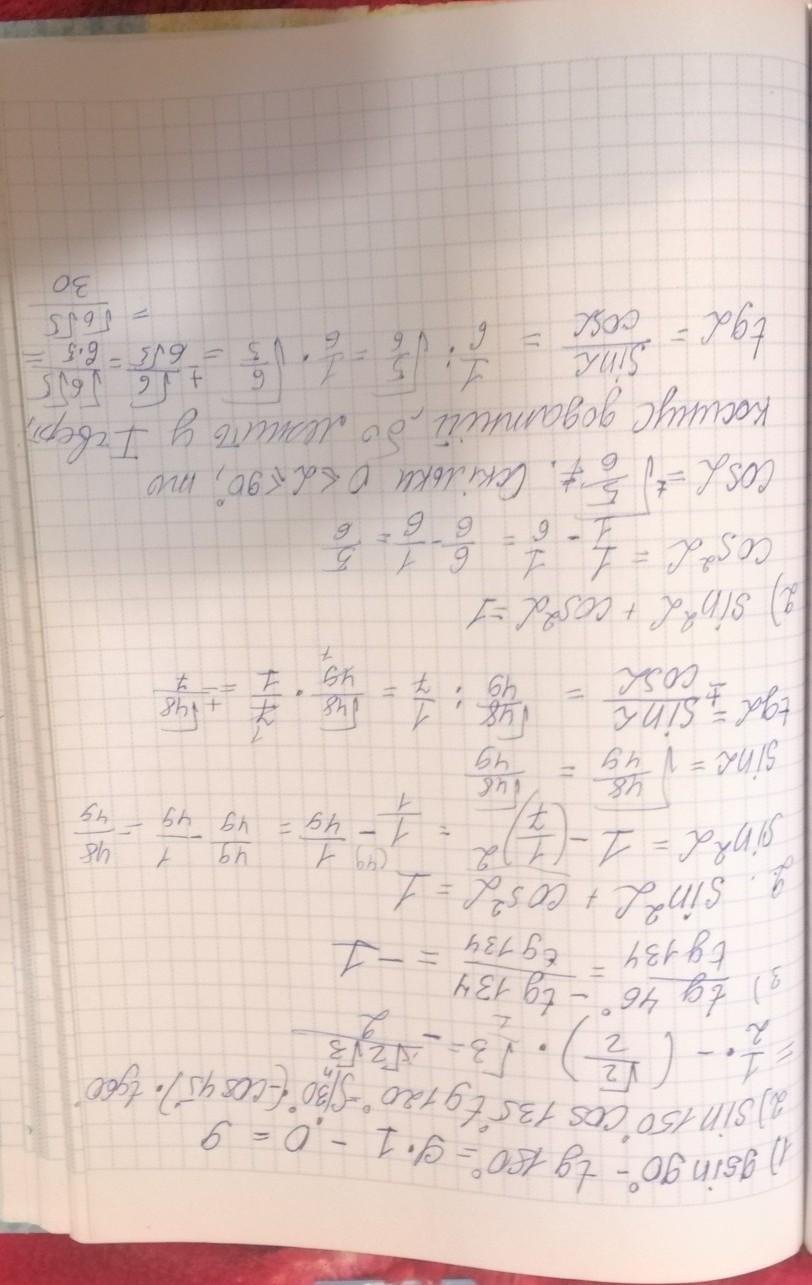 1) 9sin90° - tg180° = 9·1 - 0 = 9
2) sin150° cos135° tg120° = sin30° · (-cos45°) · tg60°
= 1/2 · - (√2/2) · √3 = - √2√3/2
3) tg 46°/tg 134 = - tg 134/tg 134 = -1
2. sin²α + cos²α = 1
sin²α = 1 - (1/7)² = 1/1 - 1/49 = 49/49 - 1/49 = 48/49
sinα = √48/49 = √48/49
tgα = ± sinα/cosα = √48/49 : 1/7 = √48/49 · 7/1 = ± √48/7
2) sin²α + cos²α = 1
cos²α = 1/1 - 1/6 = 6/6 - 1/6 = 5/6
cosα = ± √5/6. Оскільки 0 ≤ α ≤ 90°, то
косинус додатний, бо лежить у I чверт,
tgα = sinα/cosα = 1/6 : √5/6 = 1/6 · √6/5 = ± √6/6√5 = √6√5/6·5 =
= √6√5/30